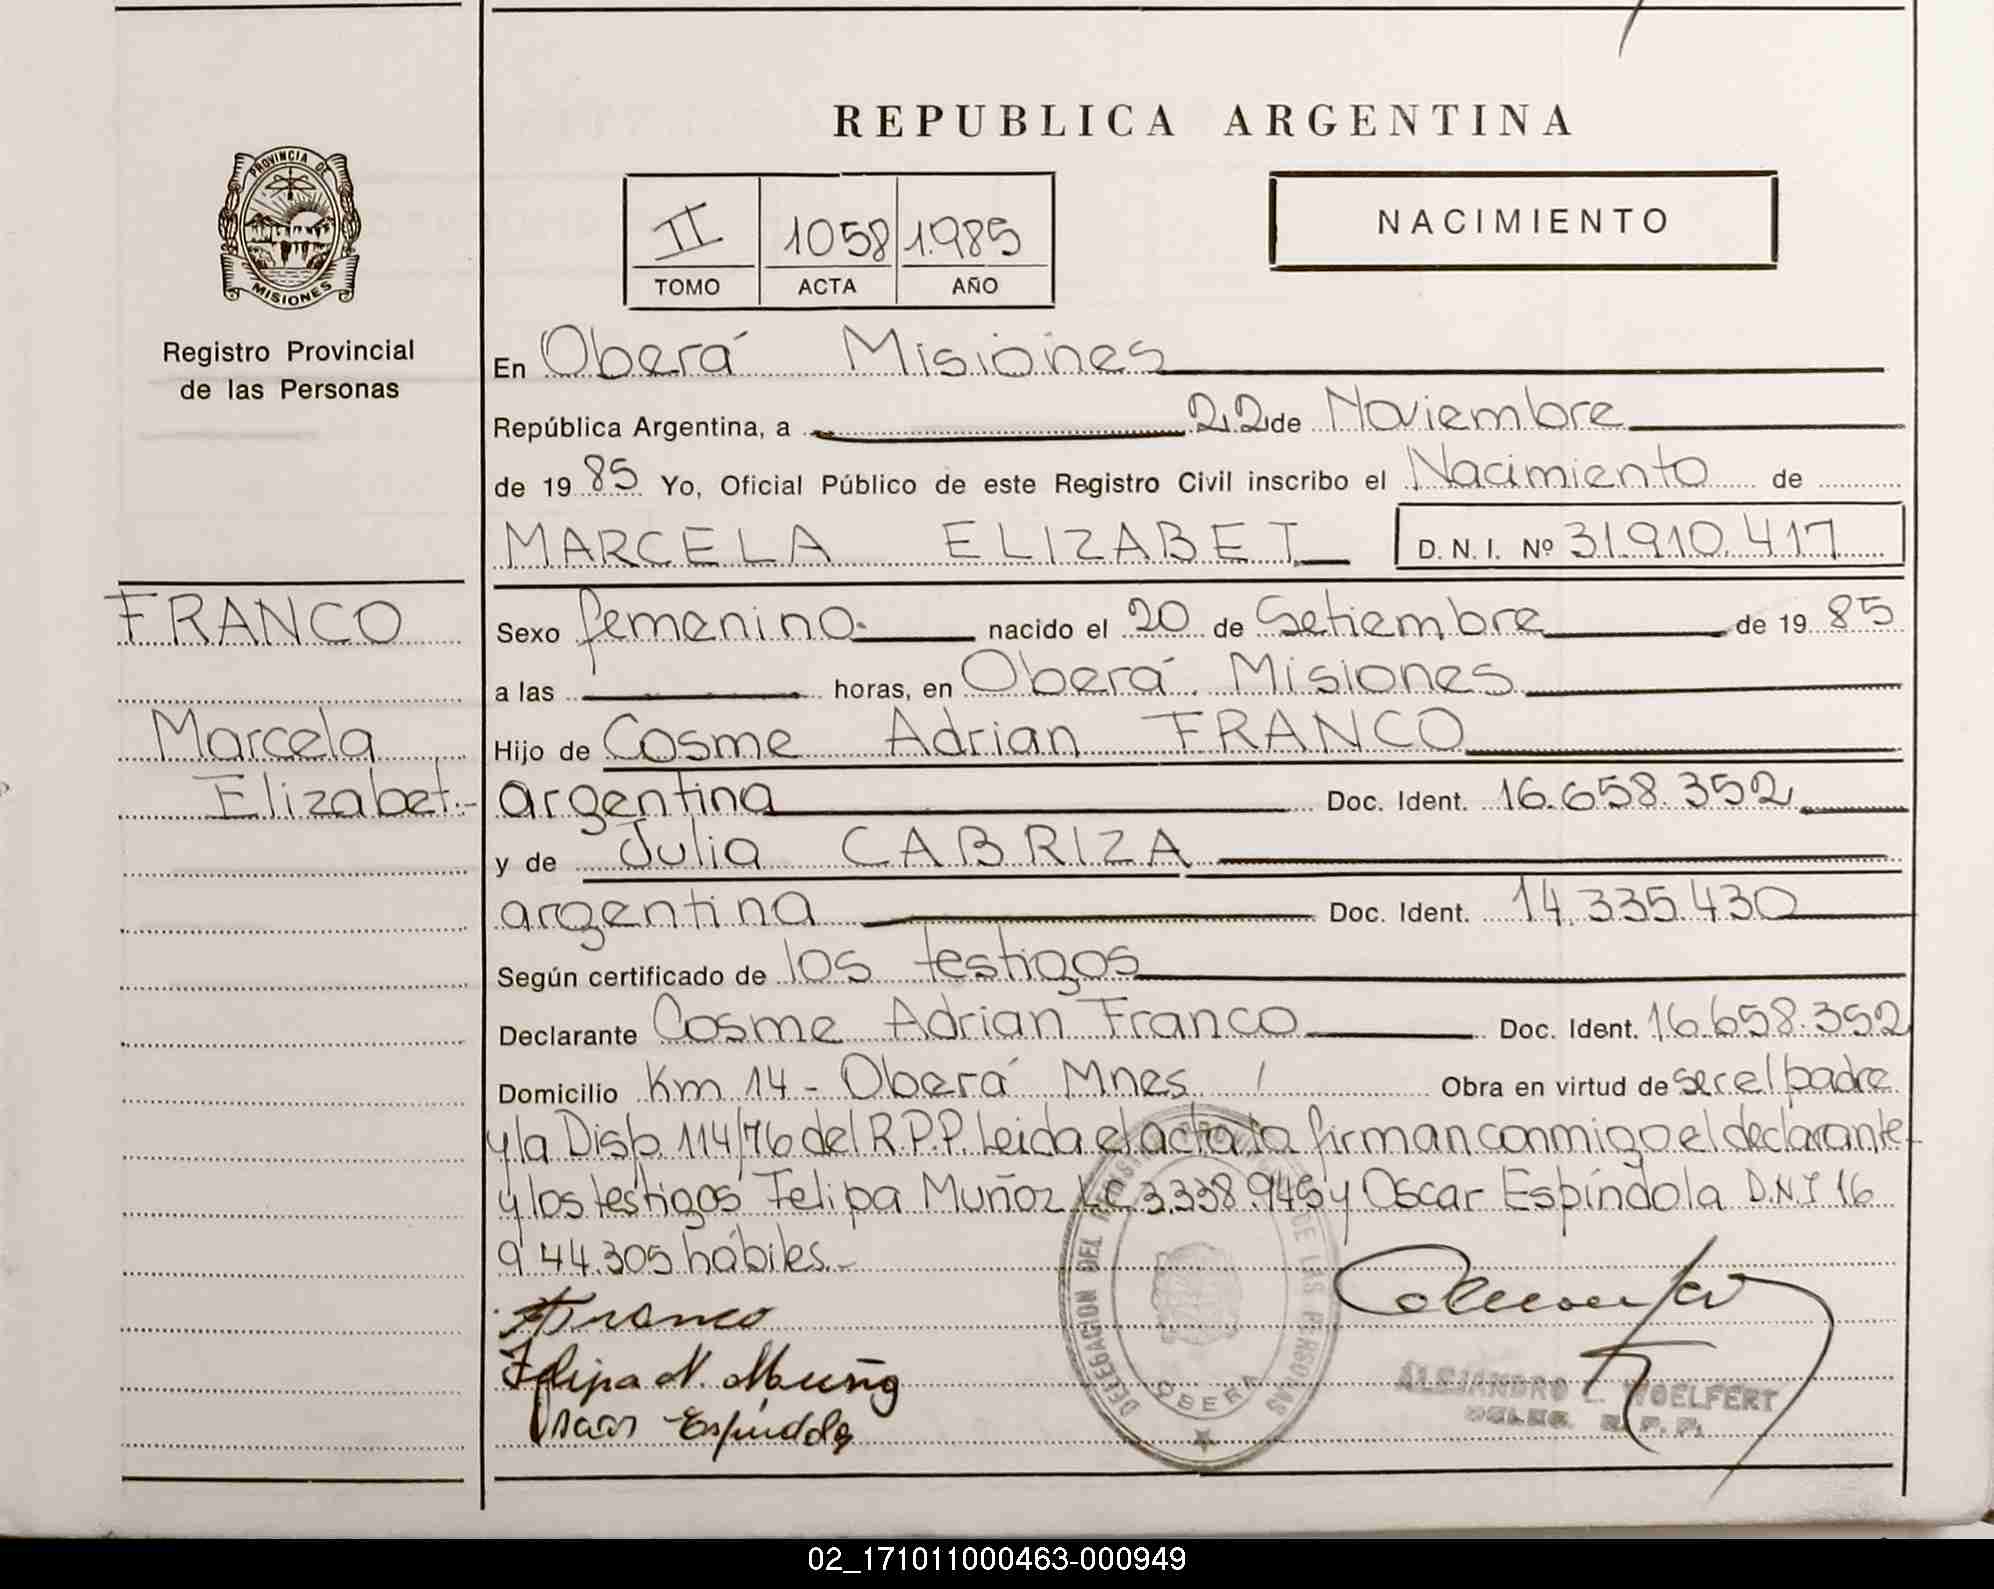 REPUBLICA ARGENTINA
PROVINCIA DE
MISIONES
Registro Provincial
de las Personas
II 1058 1.985
TOMO ACTA AÑO
NACIMIENTO
En Oberá Misiones
República Argentina, a 22 de Noviembre
de 19 85 Yo, Oficial Público de este Registro Civil inscribo el Nacimiento de
MARCELA ELIZABET D.N.I. Nº 31.910.417
FRANCO
Marcela
Elizabet.-
Sexo femenino. nacido el 20 de Setiembre de 19 85
a las horas, en Oberá. Misiones
Hijo de Cosme Adrian FRANCO
argentina Doc. Ident. 16.658.352
y de Julia CABRIZA
argentina Doc. Ident. 14.335.430
Según certificado de los testigos
Declarante Cosme Adrian Franco Doc. Ident. 16.658.352
Domicilio Km 14 - Oberá Mnes / Obra en virtud de ser el padre
y la Disp. 114/76 del R.P.P. Leida el acta la firman conmigo el declarante
y los testigos Felipa Muñoz L.C 3.338.945 y Oscar Espíndola D.N.I 16
944.305 hábiles.-
Franco
Felipa N. Muñoz
Oscar Espindola
DELEGACION DEL REGISTRO PROVINCIAL DE LAS PERSONAS
OBERA
ALEJANDRO L. WOELFERT
DELEG. R. P. P.
02_171011000463-000949